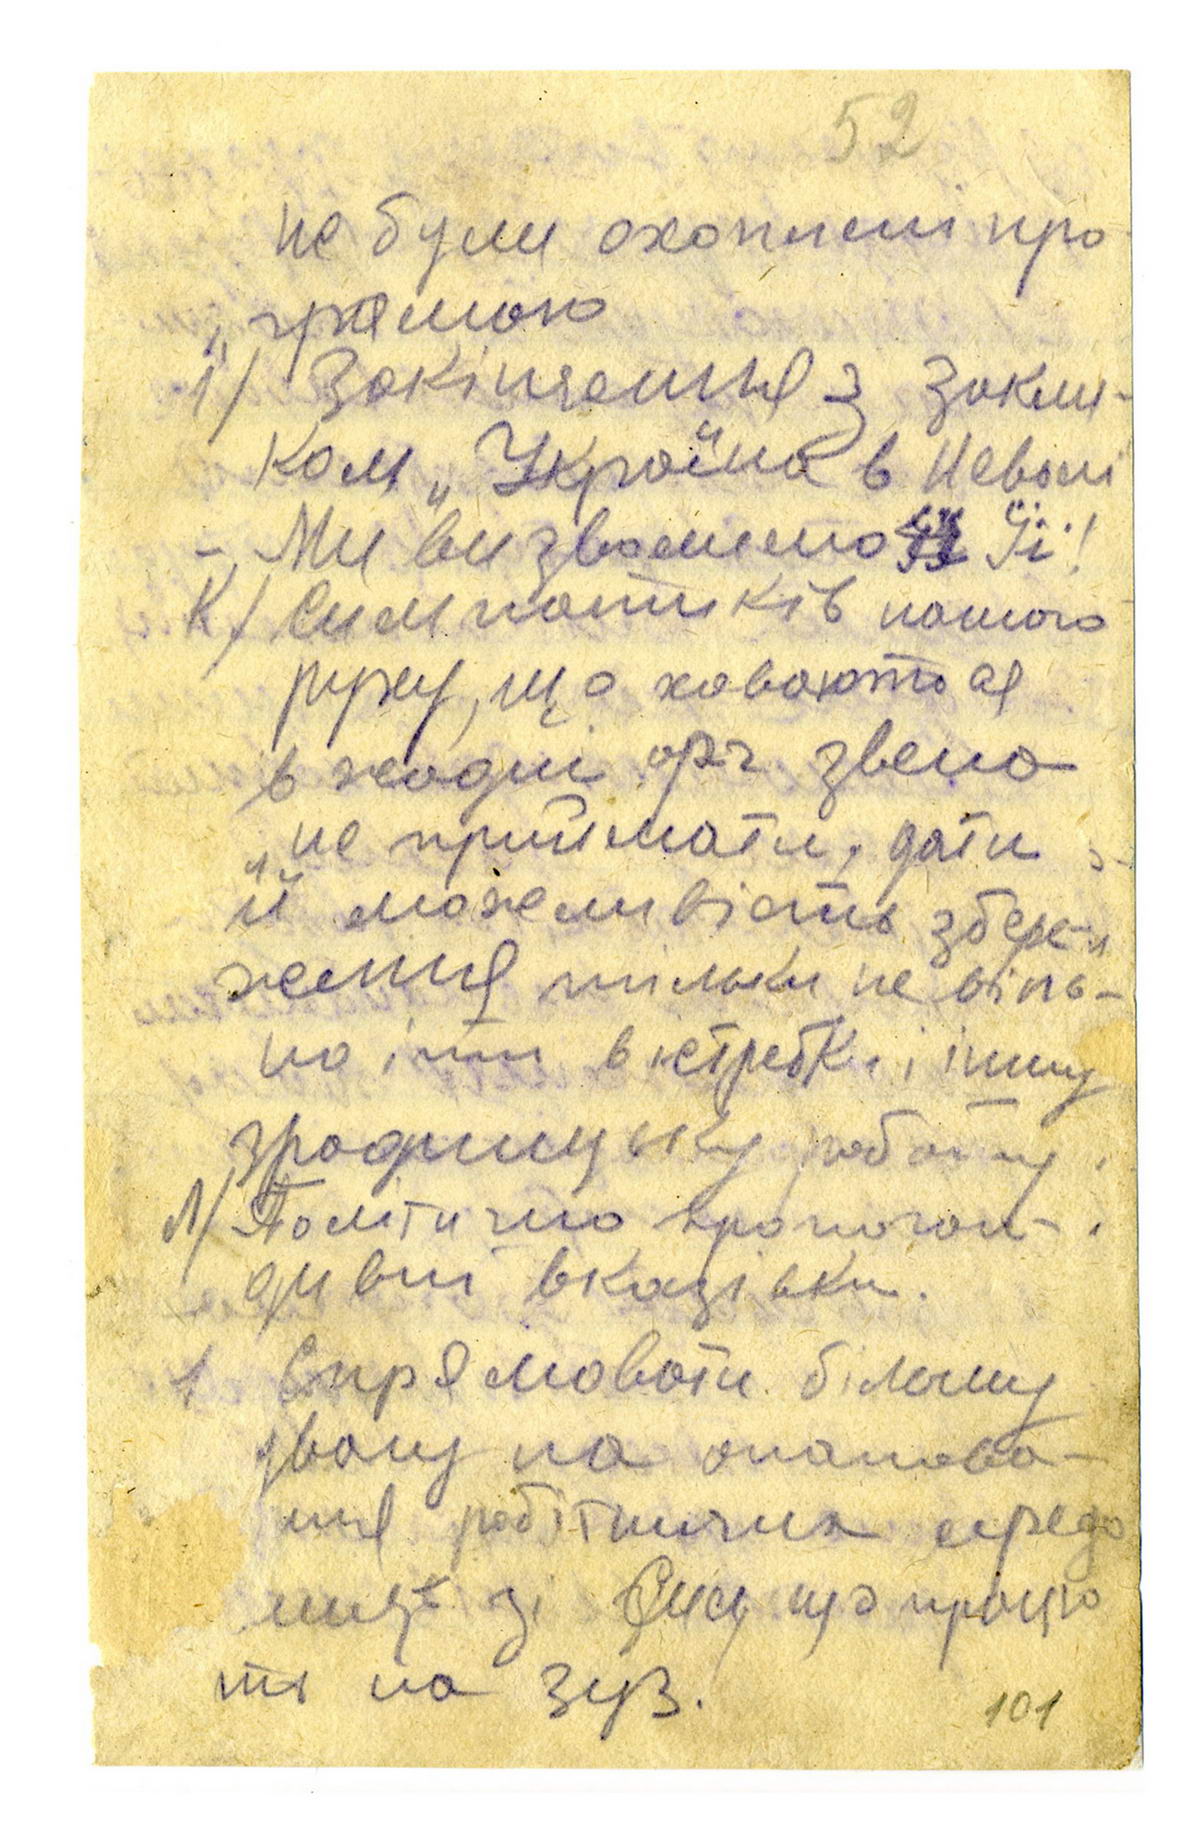 52
не були охоплені про
грамою
і/ Закінчення з закли-
ком „Україна в Неволі
- Ми визволимо Її!
К/ Симпатиків нашого
руху, що ховаються
в жодні орг звена
не приймати, дати
й можливість збере-
ження тільки не віль-
но іти в істребки і іншу
зрадницьку роботу.
Л/ Політично пропоган-
дивні вказівки.
1 Спрямовати більшу
увагу на опанова-
ння робітничих середо
вищ зі що працю
ть на ЗУЗ.
101